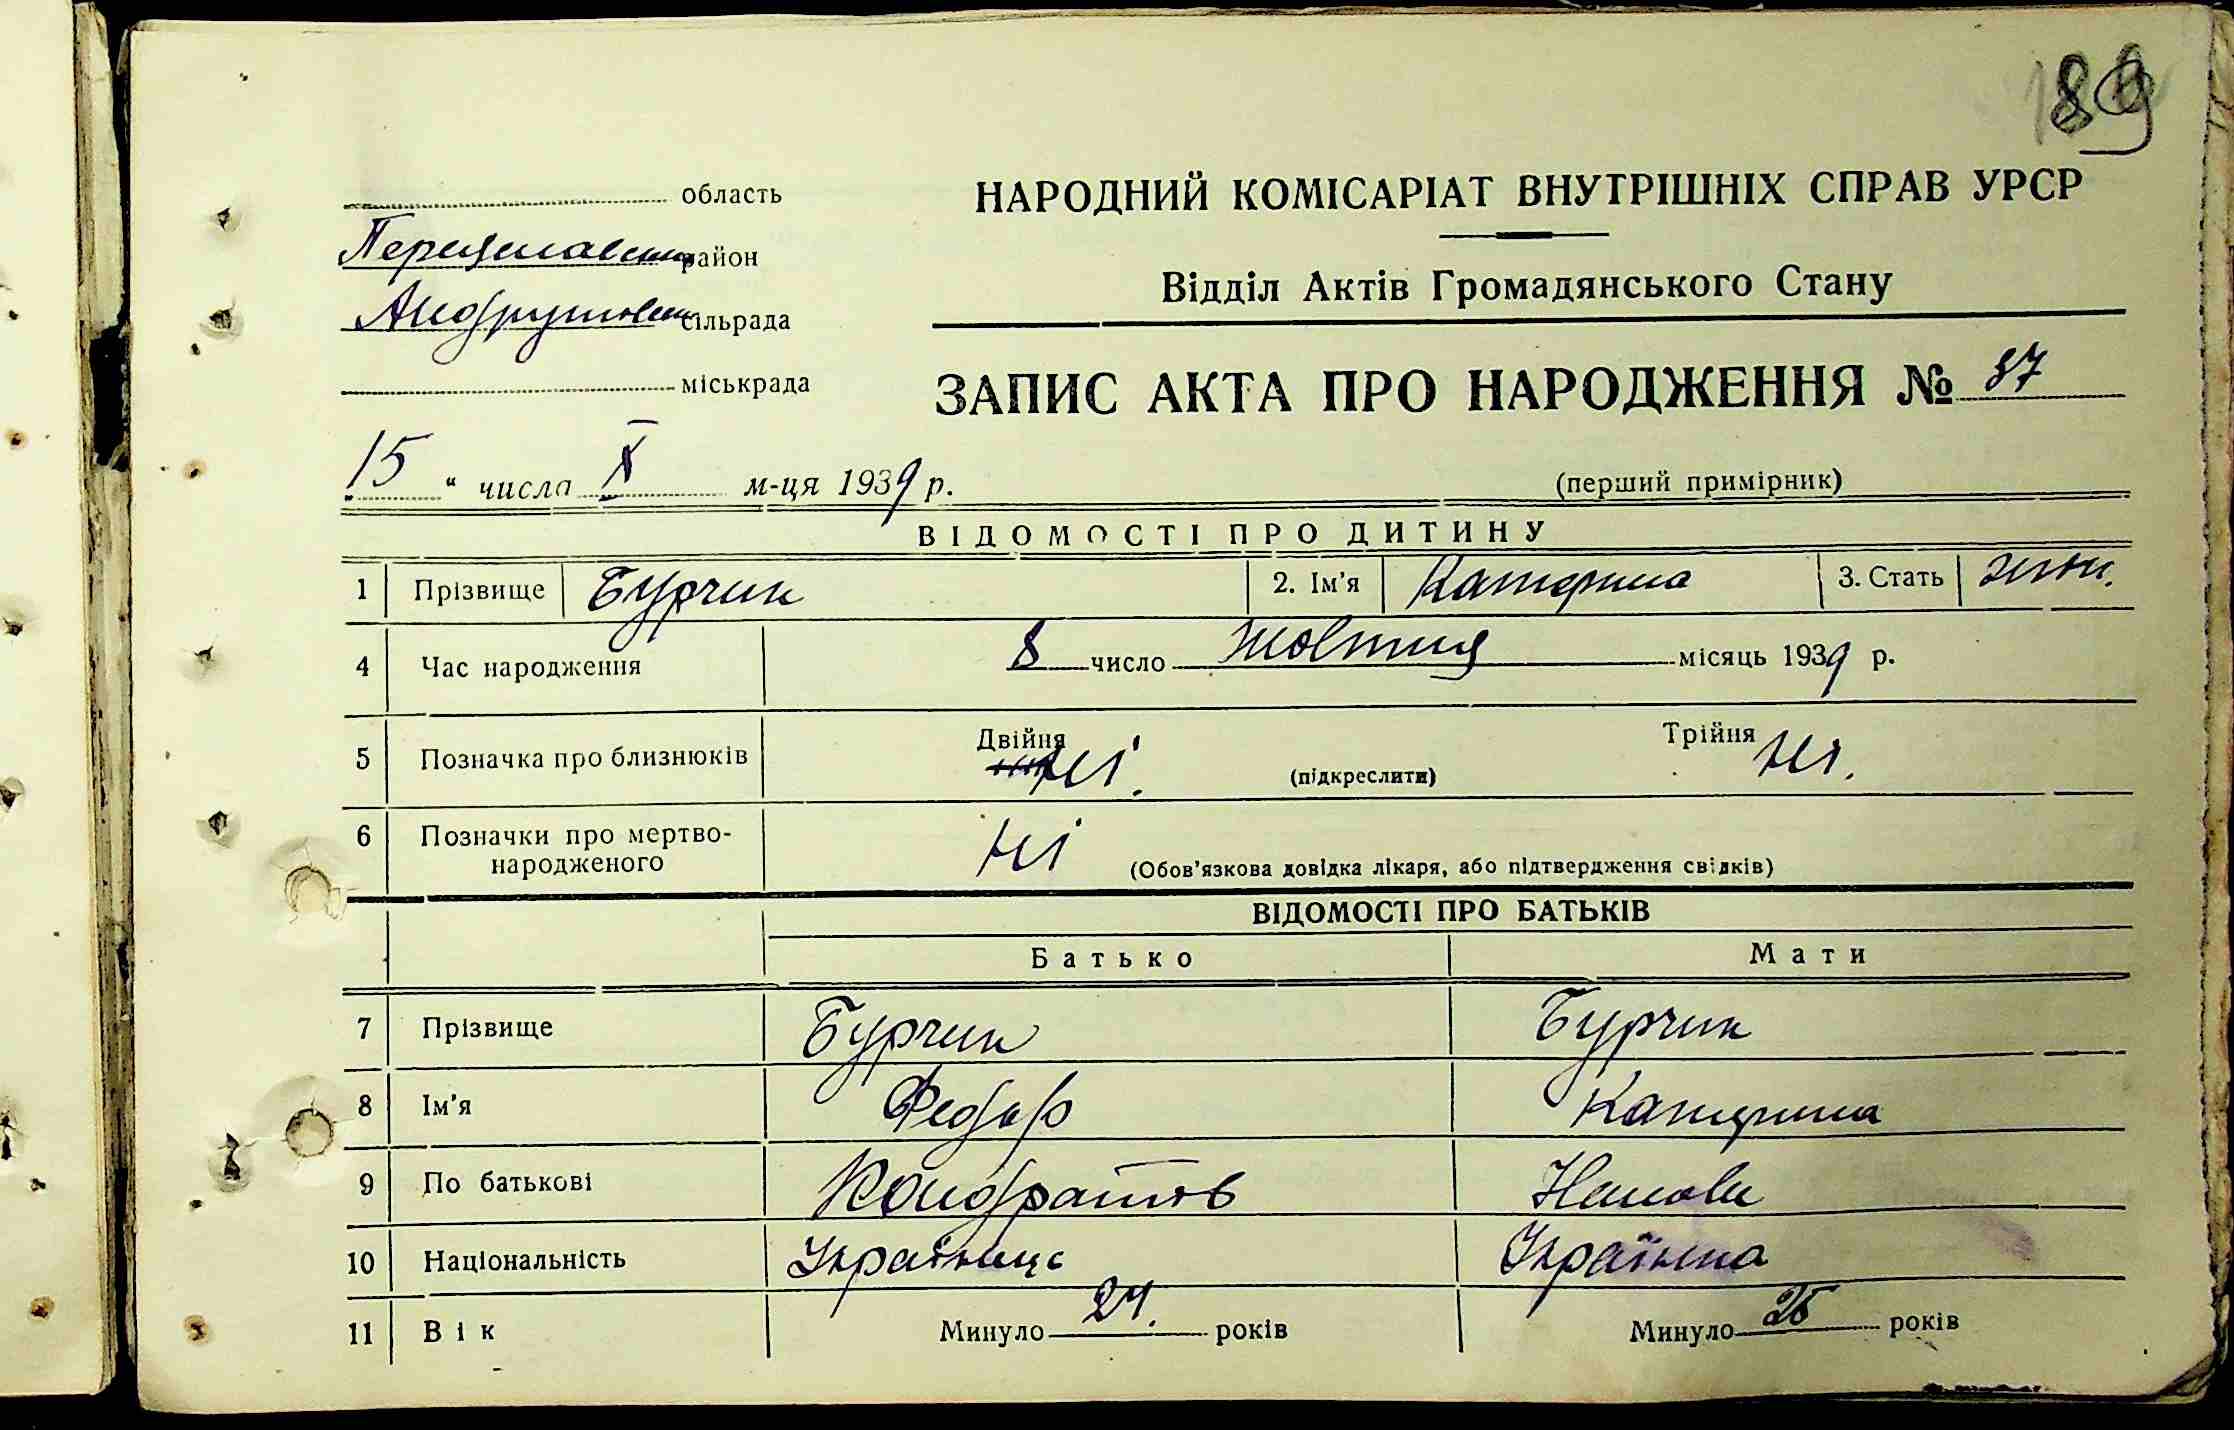 89
область
НАРОДНИЙ КОМІСАРІАТ ВНУТРІШНІХ СПРАВ УРСР
Переяславський район
Відділ Актів Громадянського Стану
Андрушівськ сільрада
міськрада
ЗАПИС АКТА ПРО НАРОДЖЕННЯ № 87
„15" числа X м-ця 1939 р.
(перший примірник)
ВІДОМОСТІ ПРО ДИТИНУ
1 Прізвище Бурчик 2. Ім'я Катерина 3. Стать жін.
4 Час народження 8 число жовтня місяць 1939 р.
5 Позначка про близнюків Двійня ні. (підкреслити) Трійня ні.
6 Позначки про мертво-
народженого ні (Обов'язкова довідка лікаря, або підтвердження свідків)
ВІДОМОСТІ ПРО БАТЬКІВ
Батько Мати
7 Прізвище Бурчик Бурчик
8 Ім'я Федор Катерина
9 По батькові Кондратов
10 Національність Українець Українка
11 Вік Минуло 24. років Минуло 25 років